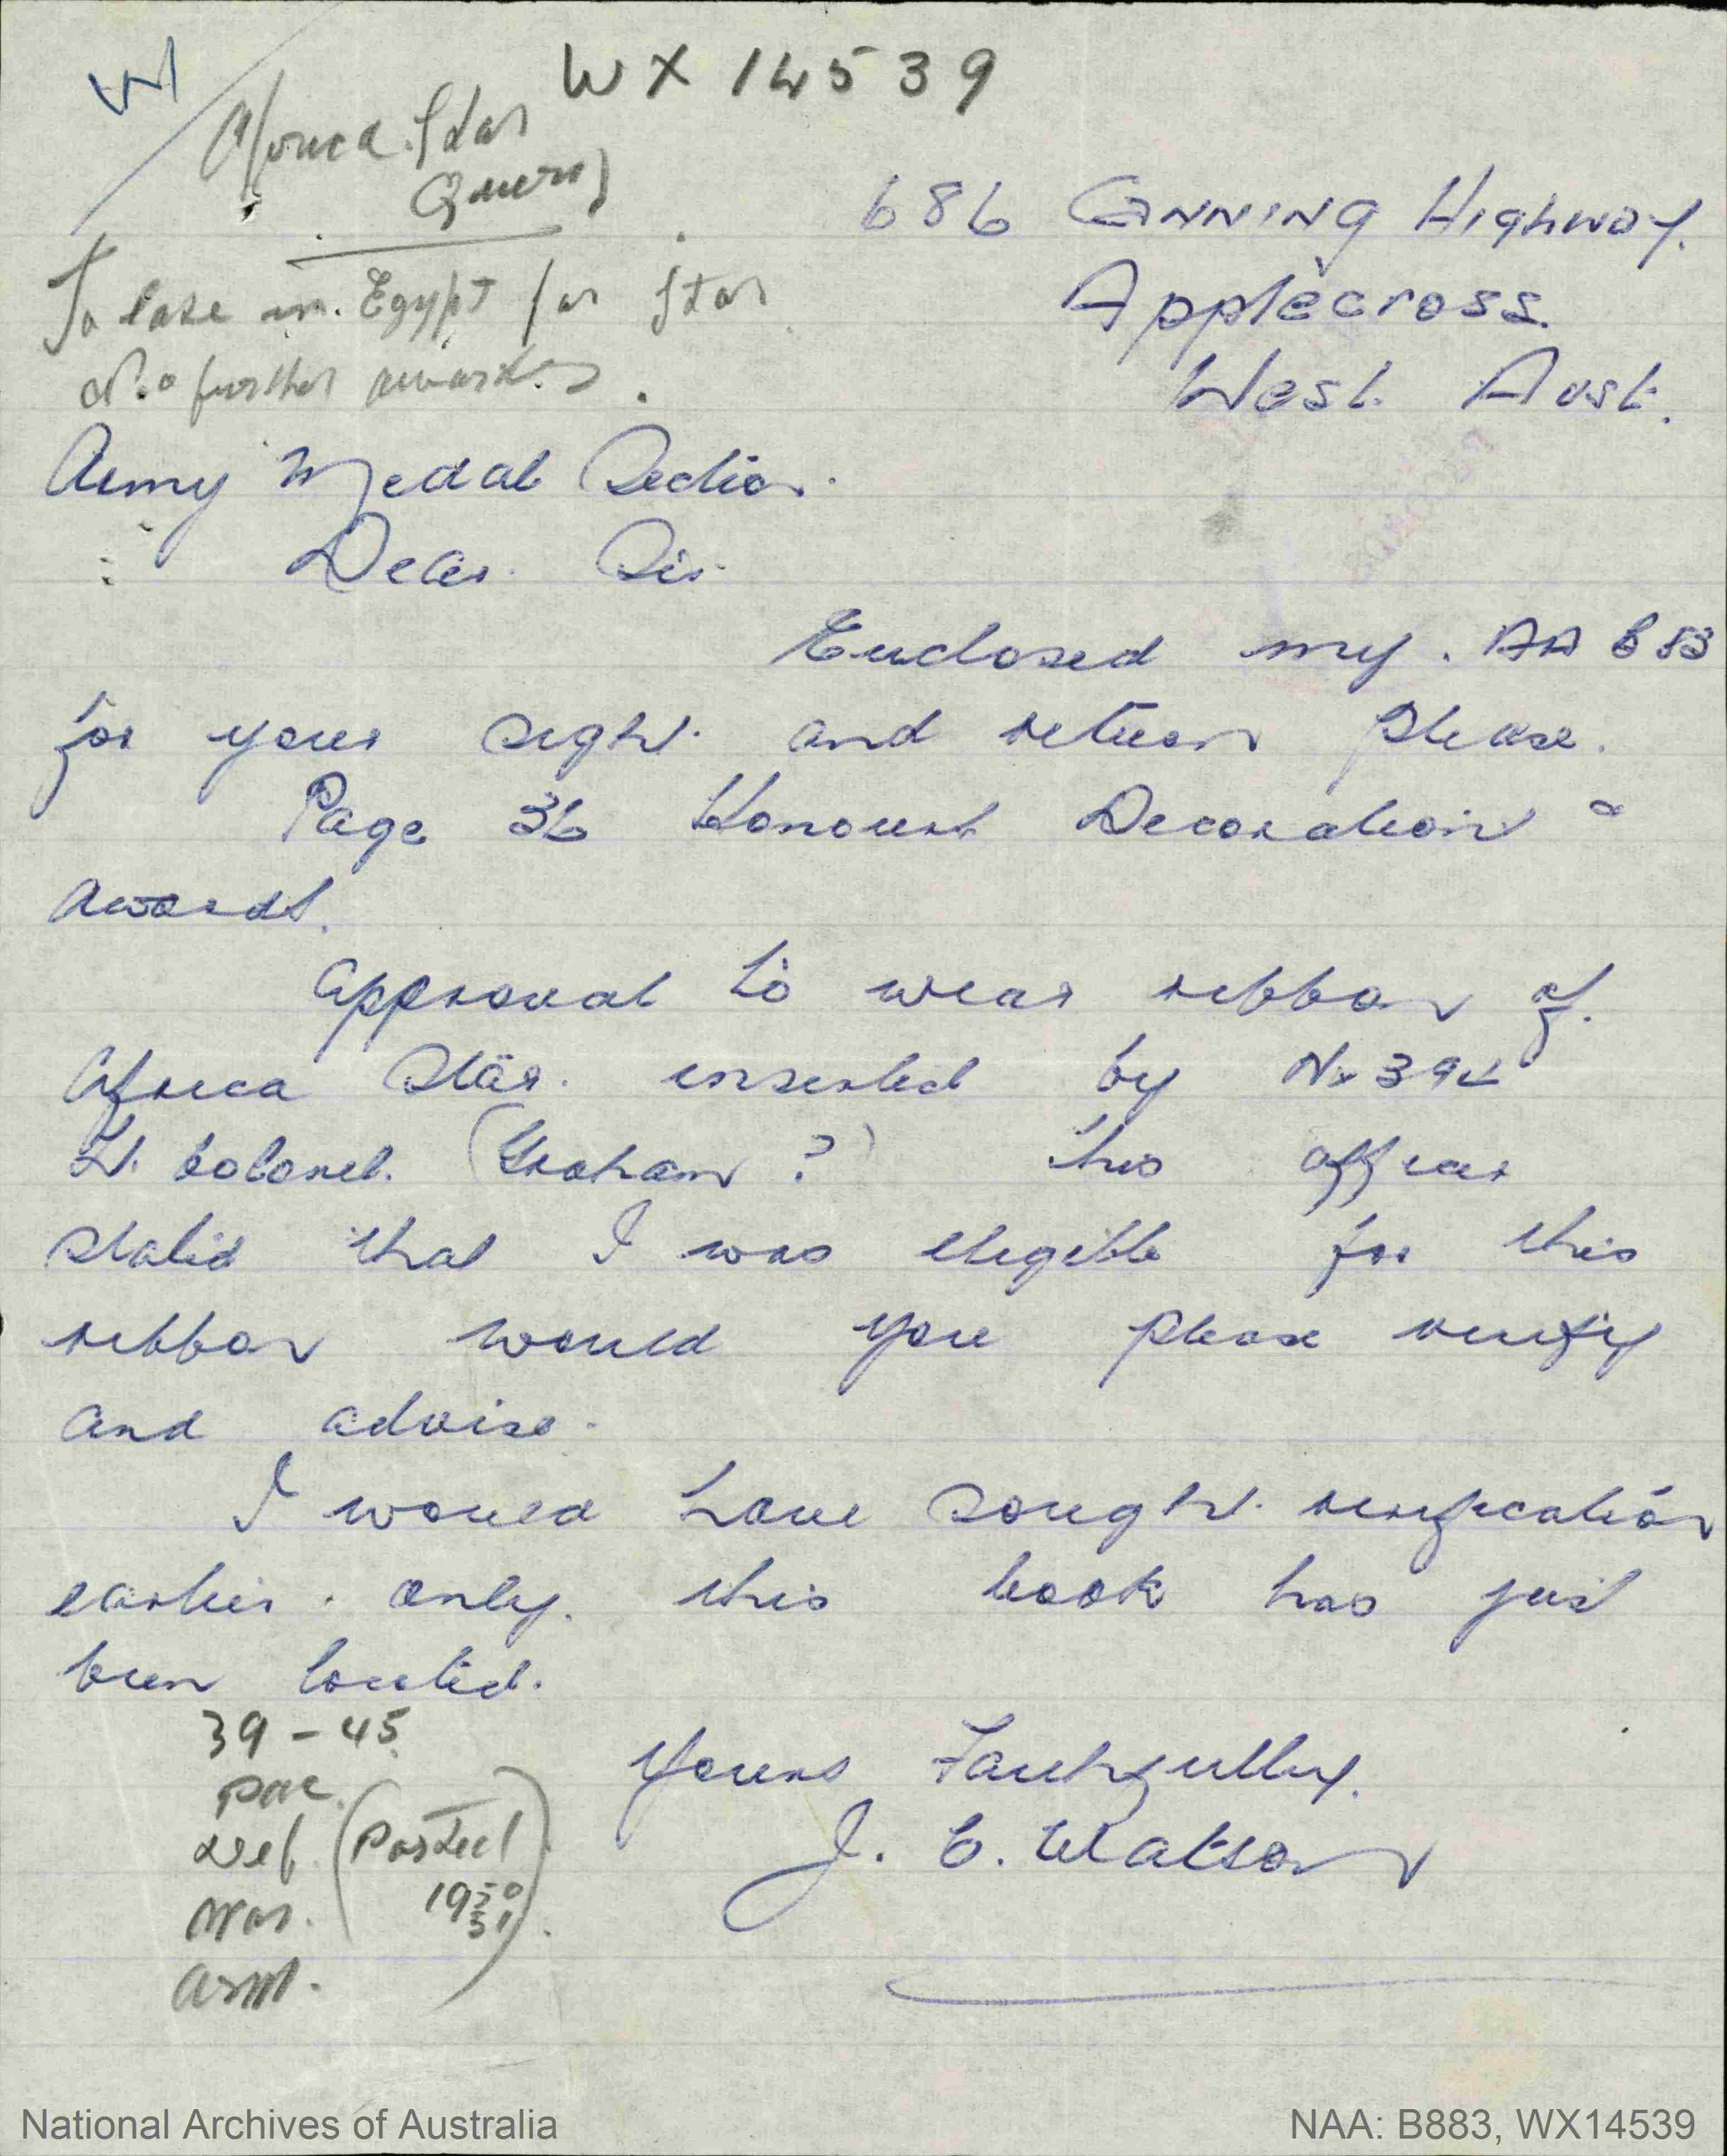 W
WX 14539
Africa Star
Query
To late in Egypt for Star
No further awards.
686 Canning Highway.
Applecross.
West. Aust.
Army Medal Section.
Dear Sir.
Enclosed my. AA B 83
for your sight. and return please.
Page 36 Honours Decoration &
awards.
Approval to wear ribbon of.
Africa Star. inserted by Nx 394
Lt. Colonel. (Graham ?) this officer
stated that I was elegible for this
ribbon would you please verify
and advise.
I would have sought. verification
earlier. only. this book has just
been located.
39 - 45
Pac.
Def. (Posted
War. 1950
51).
ASM.
Yours Faithfully.
J. C. Watson
National Archives of Australia
NAA: B883, WX14539